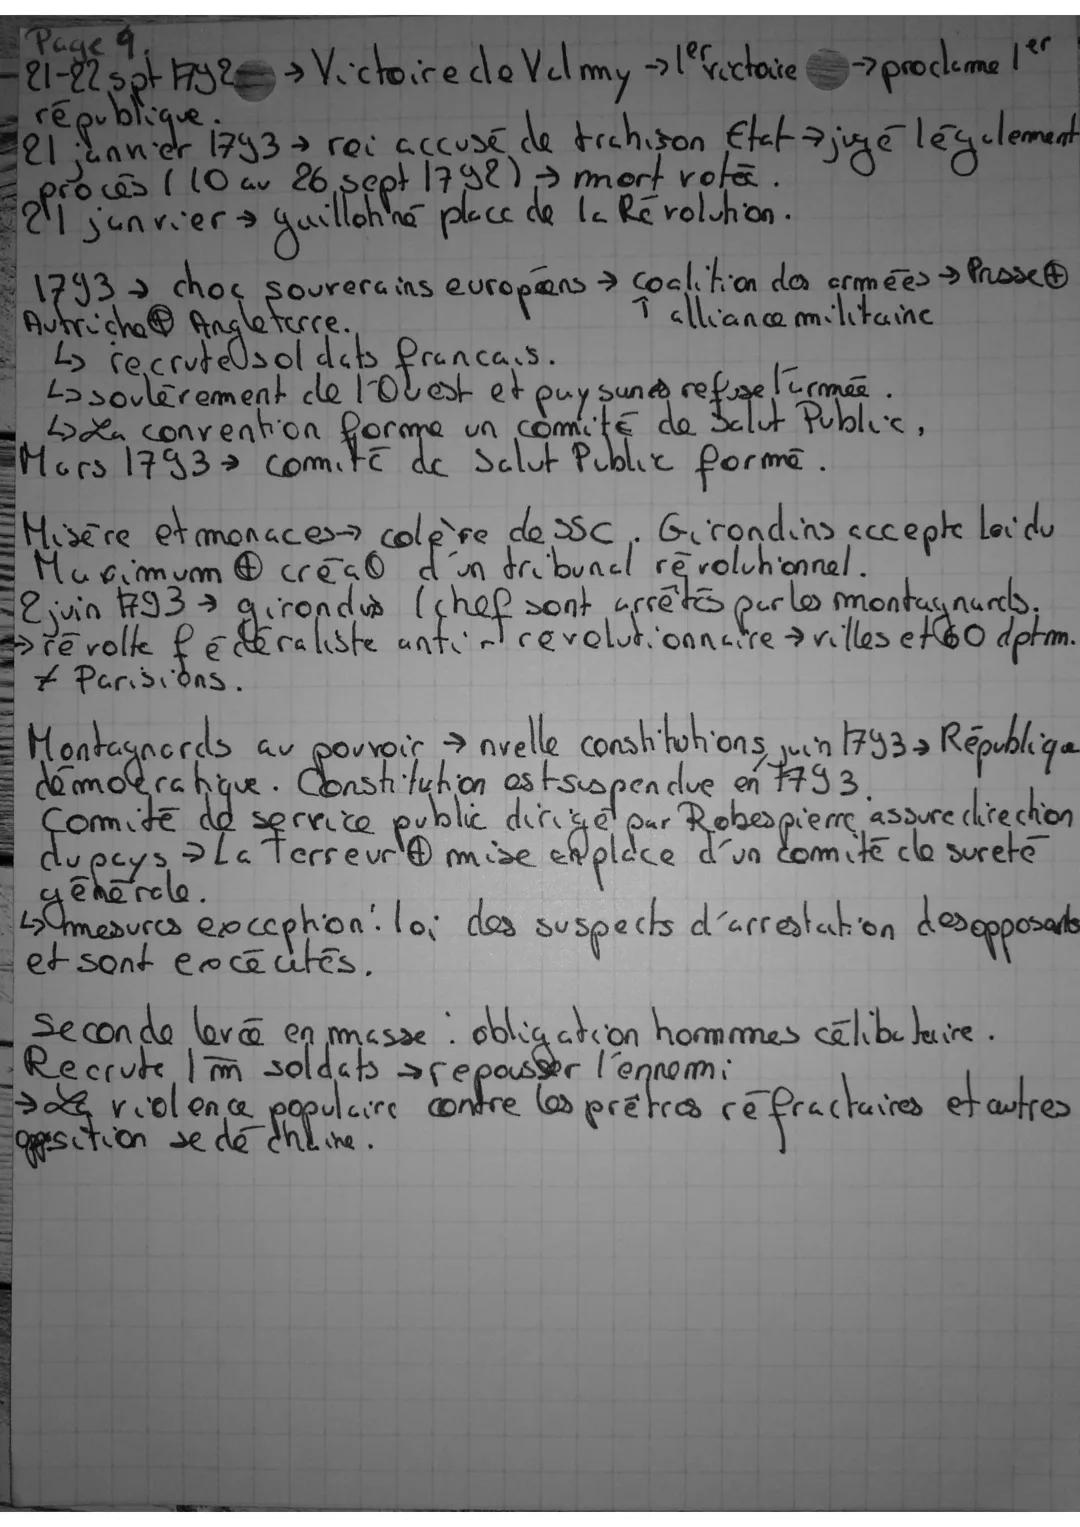 Page 9.
21-22 spt 1792 → Victoire de Valmy → 1er victoire → proclame 1er
république.
21 janvier 1793 → roi accusé de trahison Etat → jugé légalement
procès (10 au 26 sept 1792) → mort votée.
21 janvier → guillotiné place de la Révolution.
1793 → choc souverains européens → coalition des armées → Prusse ⊕
Autriche ⊕ Angleterre. ↑ alliance militaire
↳ recrute soldats francais.
↳ soulèvement de l'Ouest et paysans refuse l'armée.
↳ La convention forme un comité de Salut Public,
Mars 1793 → comité de Salut Public formé.
Misère et menaces → colère des SC. Girondins accepte loi du
Maximum ⊕ créa° d'un tribunal révolutionnel.
2 juin 1793 → girondins (chef sont arrêtés par les montagnards.
→ révolte fédéraliste anti-révolutionnaire → villes et 60 dptm.
≠ Parisions.
Montagnards au pouvoir → nvelle constitutions, juin 1793 → République
démocratique. Constitution est suspendue en 1793.
Comité de service public dirigé par Robespierre, assure direction
du pays → La Terreur ⊕ mise en place d'un comité de sureté
générale.
↳ mesures exception : loi des suspects d'arrestation des opposants
et sont exécutés.
Seconde levée en masse : obligation hommes célibataire.
Recrute 1 m soldats → repousser l'ennemi
→ La violence populaire contre les prêtres réfractaires et autres
opposition se déchaine.